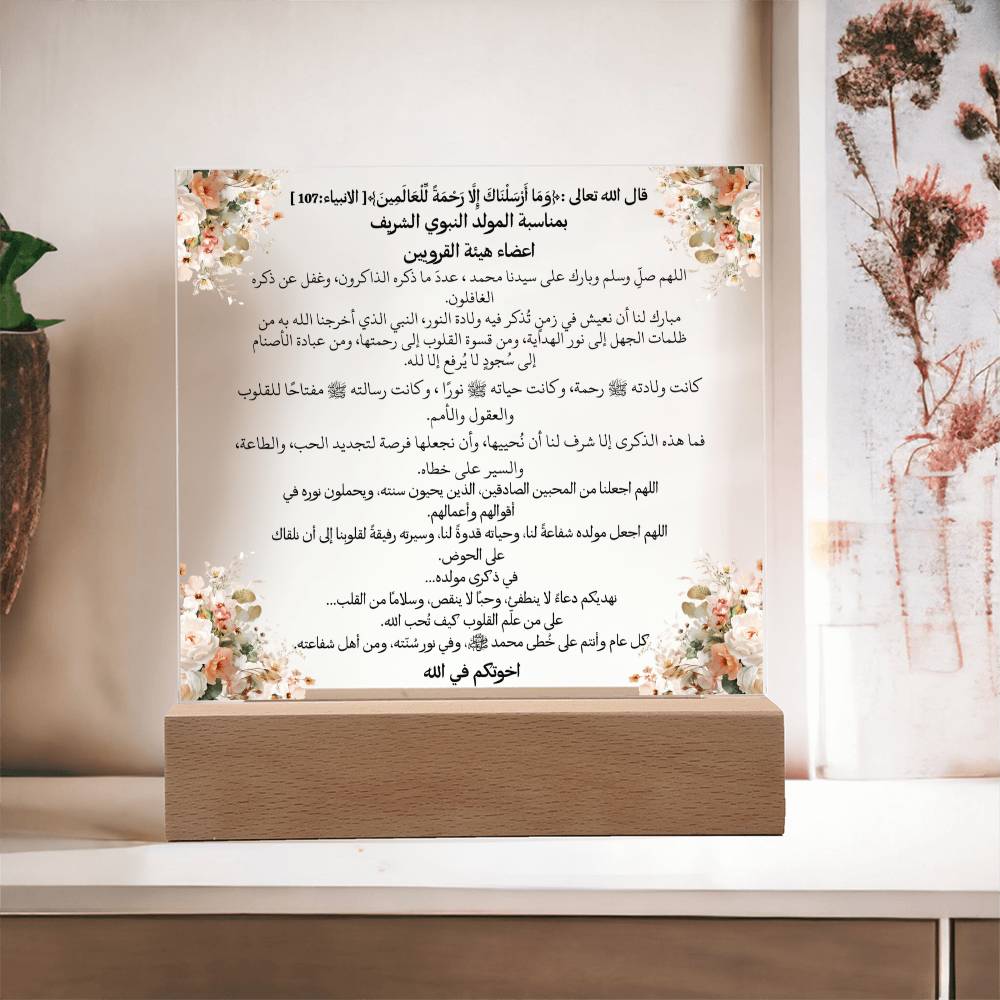 قال الله تعالى :﴿وَمَا أَرْسَلْنَاكَ إِلَّا رَحْمَةً لِّلْعَالَمِينَ﴾[ الانبياء:107 ]
بمناسبة المولد النبوي الشريف
اعضاء هيئة القرويين
اللهم صلِّ وسلم وبارك على سيدنا محمد ، عددَ ما ذكره الذاكرون، وغفل عن ذكره
الغافلون.
مبارك لنا أن نعيش في زمنٍ تُذكر فيه ولادة النور، النبي الذي أخرجنا الله به من
ظلمات الجهل إلى نور الهداية، ومن قسوة القلوب إلى رحمتها، ومن عبادة الأصنام
إلى سُجودٍ لا يُرفع إلا لله.
كانت ولادته ﷺ رحمة، وكانت حياته ﷺ نورًا ، وكانت رسالته ﷺ مفتاحًا للقلوب
والعقول والأمم.
فما هذه الذكرى إلا شرف لنا أن نُحييها، وأن نجعلها فرصة لتجديد الحب، والطاعة،
والسير على خطاه.
اللهم اجعلنا من المحبين الصادقين، الذين يحيون سنته، ويحملون نوره في
أقوالهم وأعمالهم.
اللهم اجعل مولده شفاعةً لنا، وحياته قدوةً لنا، وسيرته رفيقةً لقلوبنا إلى أن نلقاك
على الحوض.
في ذكرى مولده...
نهديكم دعاءً لا ينطفئ، وحبًا لا ينقص، وسلامًا من القلب...
على من علّم القلوب كيف تُحب الله.
كل عام وأنتم على خُطى محمد ﷺ، وفي نور سُنّته، ومن أهل شفاعته.
اخوتكم في الله